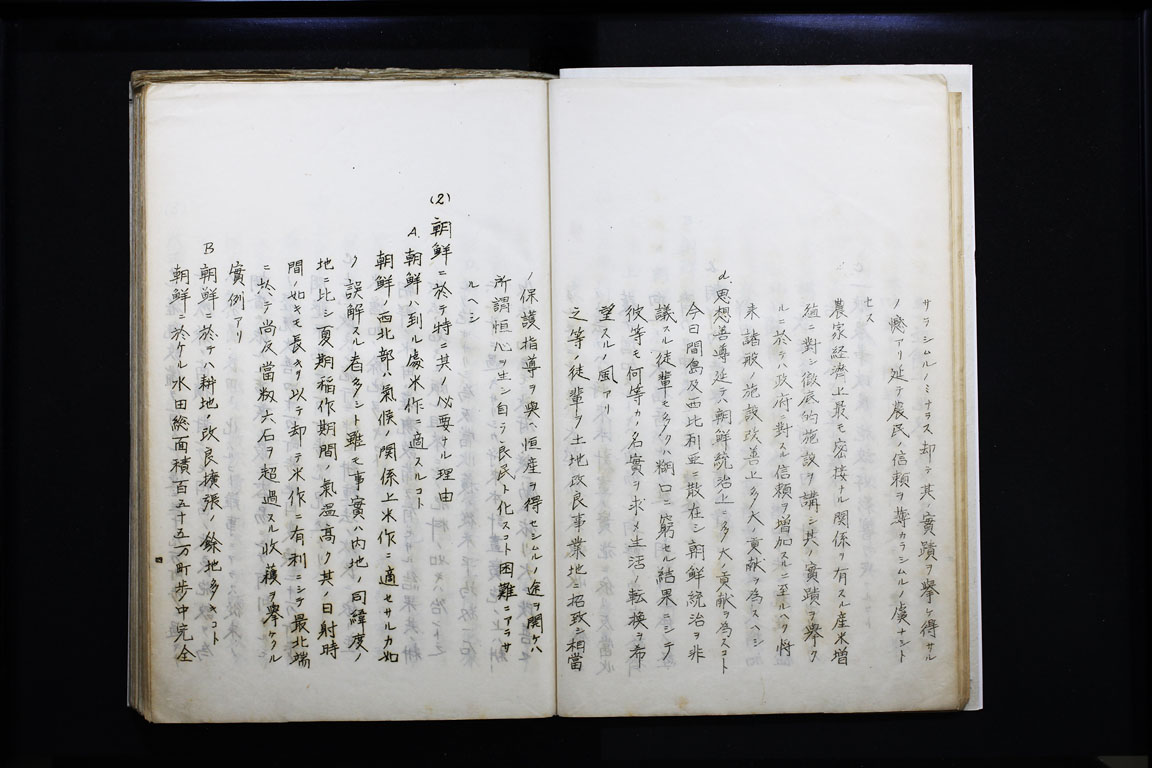 サラシムルノミナラス却テ其ノ實蹟ヲ擧ケ得サル
ノ憾アリ延テ農民ノ信頼ヲ薄カラシムルノ虞ナシト
セス
農家経済上最モ密接ナル関係ヲ有スル産米増
殖ニ對シ徹底的施設ヲ講シ其ノ實蹟ヲ擧ク
ルニ於テハ政府ニ對スル信頼ヲ増加スルニ至ルヘク將
来諸般ノ施設改善上多大ノ貢献ヲ為スヘシ
d.思想善導延テハ朝鮮統治上ニ多大ノ貢献ヲ為スコト
今日間島及西比利亜ニ散在シ朝鮮統治ヲ非
議スル徒輩モ多クハ糊口ニ窮セル結果ニシテ
彼等モ何等カノ名實ヲ求メ生活ノ転換ヲ希
望スルノ風アリ
之等ノ徒輩ヲ土地改良事業地ニ招致シ相當
ノ保護指導ヲ與ヘ恒産ヲ得セシムルノ途ヲ開ケハ
所謂恒心ヲ生シ自ラ良民ト化スコト困難ニアラサ
ルヘシ
(2)朝鮮ニ於テ特ニ其ノ必要ナル理由
A.朝鮮ハ到ル處米作ニ適スルコト
朝鮮ノ西北部ハ氣候ノ関係上米作ニ適セサルカ如
ク誤解スル者多シト雖モ事實ハ内地ノ同緯度ノ
地ニ比シ夏期稲作期間ノ氣温高ク其ノ日射時
間ノ如キモ長キヲ以テ却テ米作ニ有利ニシテ最北端
ニ於テ尚反當籾六石ヲ超過スル收穫ヲ擧ケタル
實例アリ
B 朝鮮ニ於テハ耕地改良擴張ノ餘地多キコト
朝鮮ニ於ケル水田総面積百五十五万町歩中完全